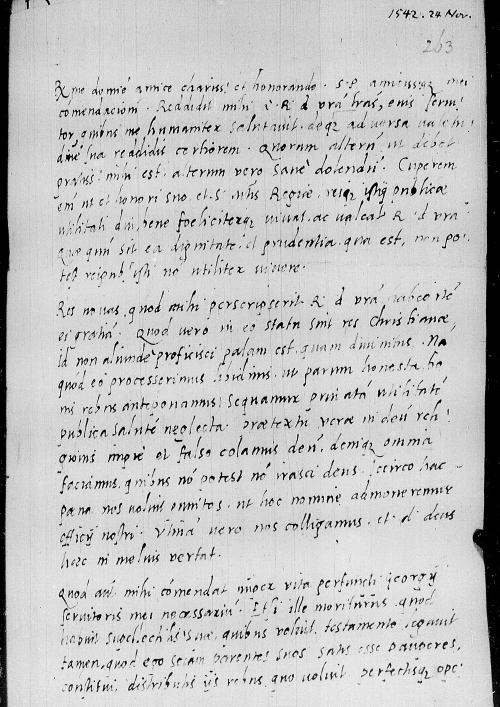 1542. 24 Nov.
263
Rme domine amice chariss: et honorande. S. P. amicitiæque mei
comendacioni. Reddidit mihi R. d. vra lras, eius servi
tor quibus me humaniter salutavit, deque adversa valetu
dine sua reddidit certiorem. Quorum alterum ut debet
gratiss: mihi est, alterum vero sane dolendum. Cuperem
em ut et honori suo et S. Mtis Regiæ, reique istique publicæ
utilitati diu bene foeliciterque vivat ac valeat R. d. vra
Quæ quum sit ea dignitate, et prudentia, qua est, non po
test reipub. isti no utiliter vivere.
Res novas, quod mihi perscripserit R. d. vra, habeo
ei gratia. Quod vero in eo statu sint res Christianæ,
id non aliunde proficisci palam est, quam divinitus. Na
quod eo processerimus libidinis, ut parum honesta, bo
nis rebus anteponamus, sequamur privata utilitate
publica salute neglecta, prætextu veræ in deum reli
gionis impie et falso colamus deum, denique omnia
faciamus, quibus no potest no irasci deus. Iccirco hac
pœna nos voluit punitos, ut hoc nomine admoneremur
officij nostri. Utina vero nos colligamus, et deus
hæc in melius vertat.
Quod aut mihi comendat inopem vita perfuncti Georgij
servitoris mei necessariu. Etsi ille moriturus, quod
habuit supellectilis suæ, quibus voluit, testamento legavit
tamen, quod ego sciam parentes suos satis esse pauperes,
constitui, distributis ijs rebus quo voluit, perfectisque